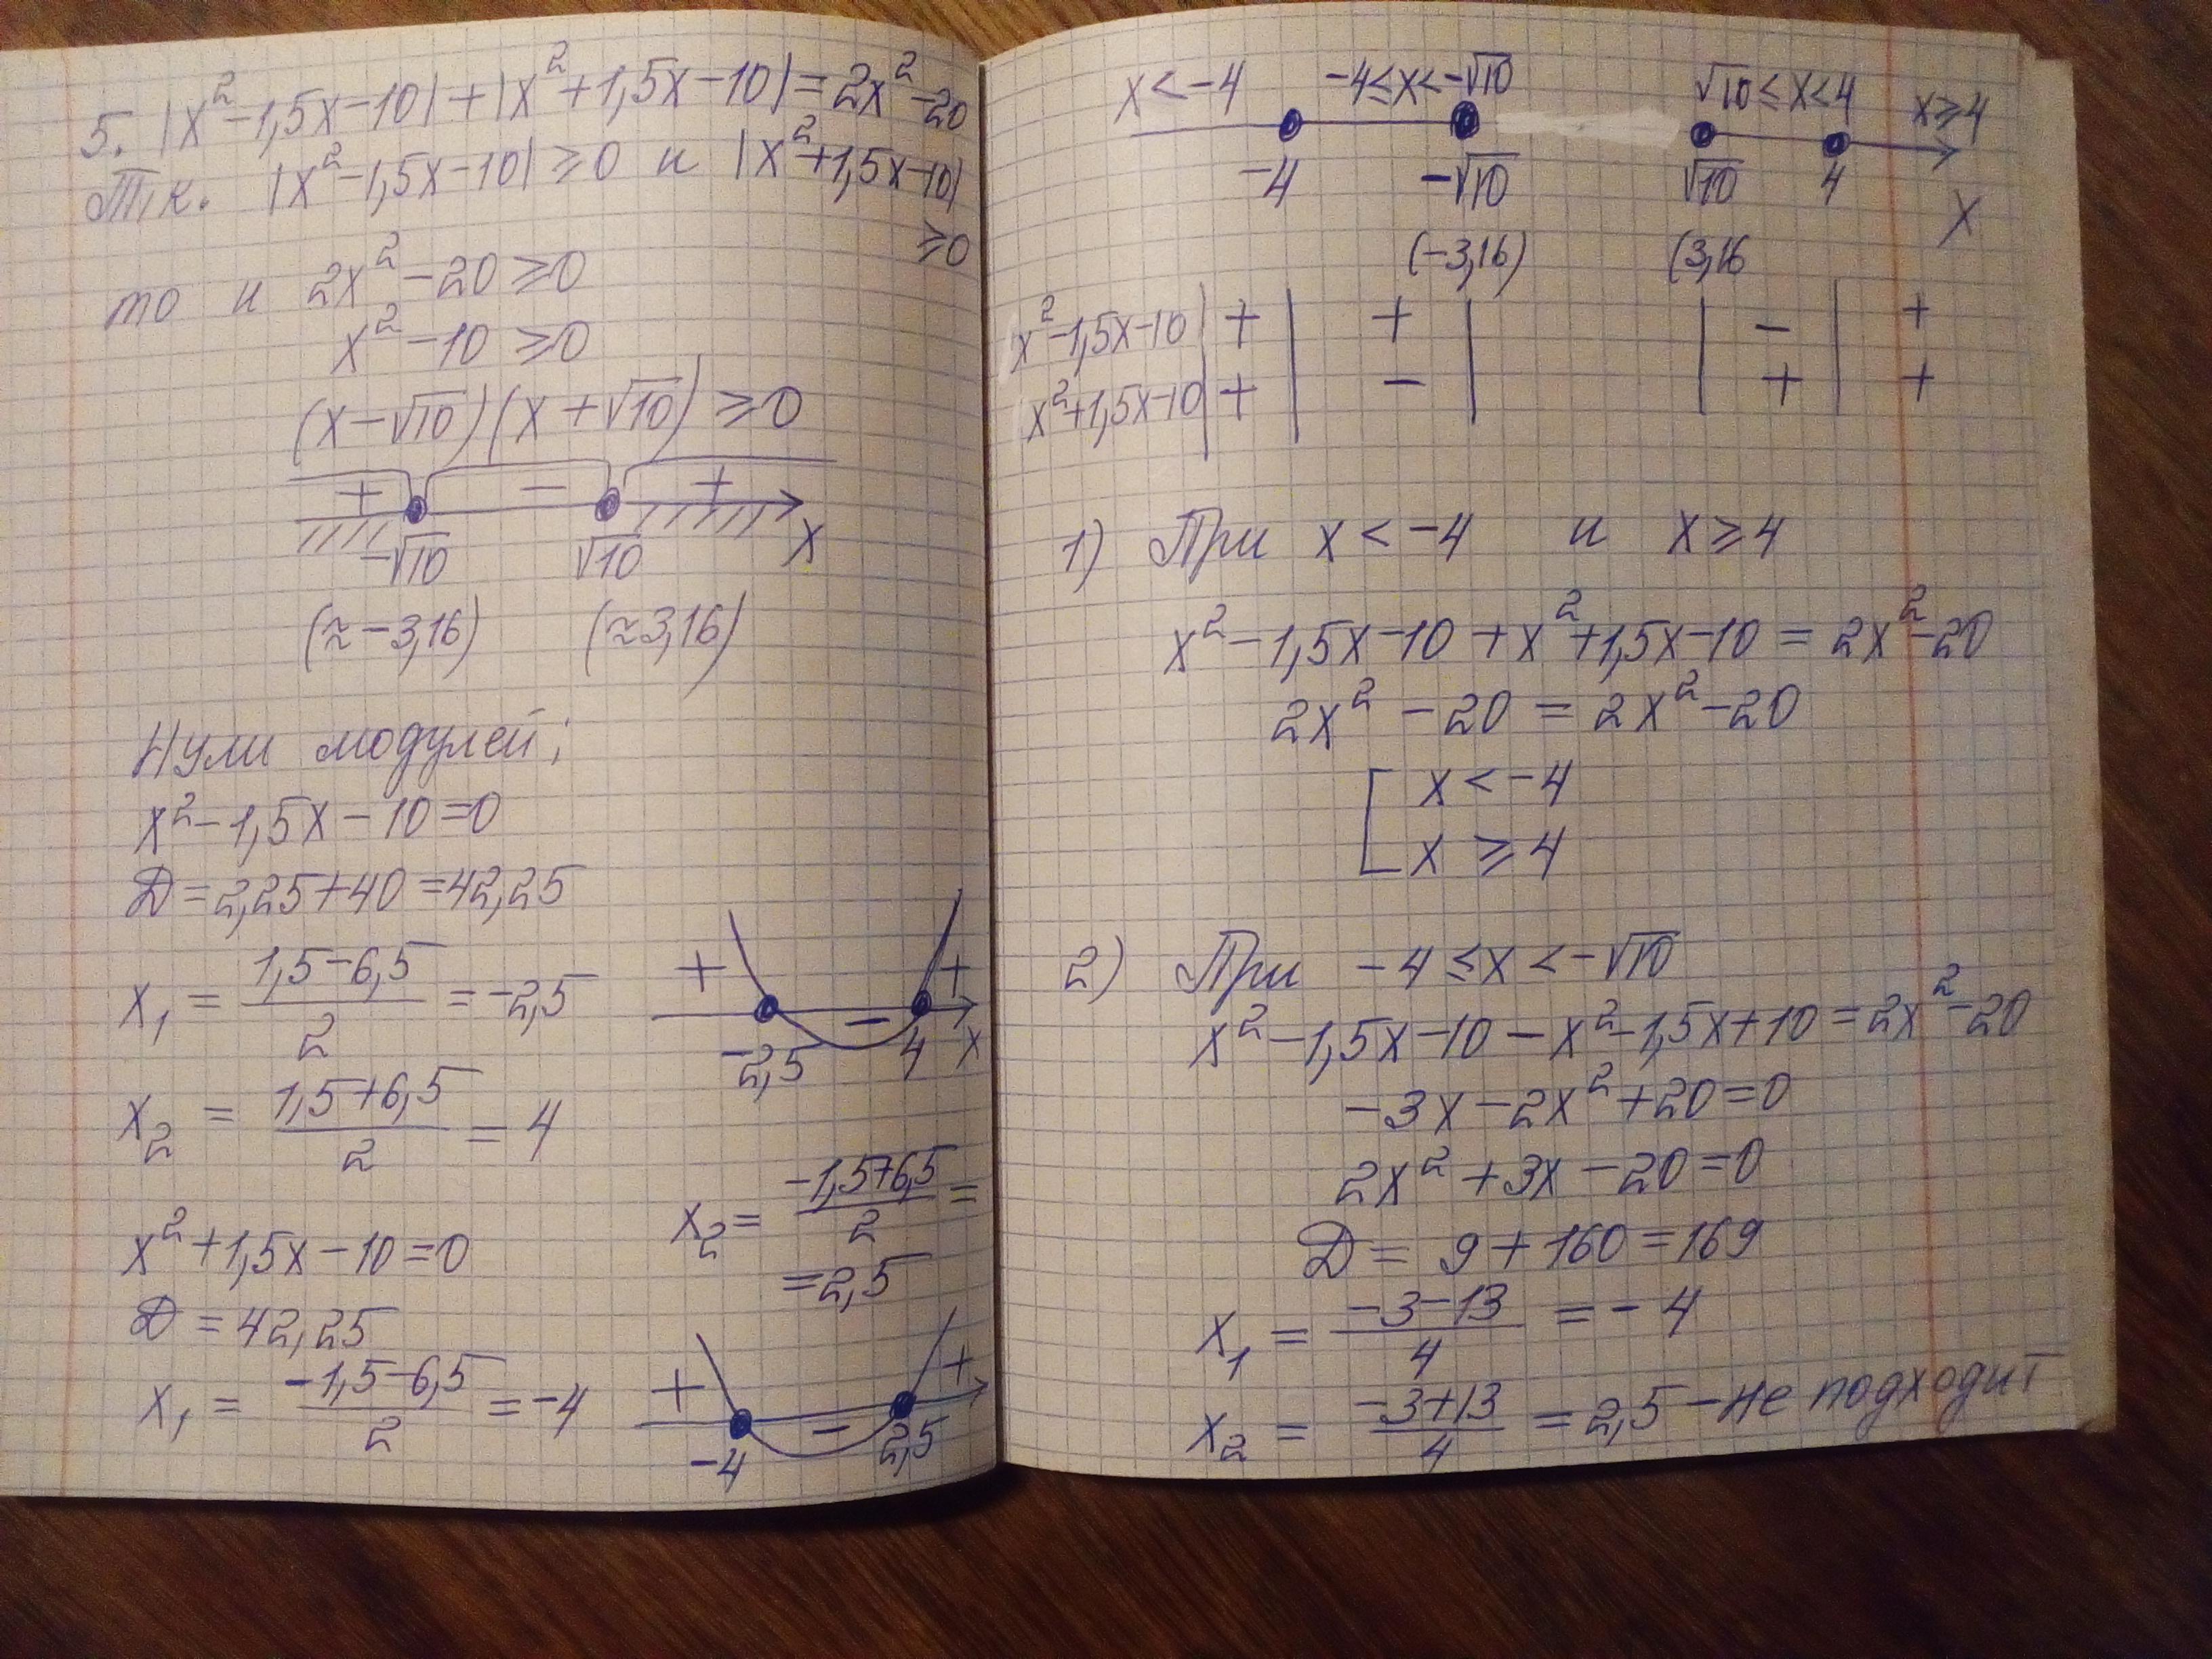 5. |x²-1,5x-10|+|x²+1,5x-10|=2x²-20
Т.к. |x²-1,5x-10|≥0 и |x²+1,5x-10|
≥0
то и 2x²-20≥0
x²-10≥0
(x-√10)(x+√10)≥0
+ - +
-√10 √10 x
(≈-3,16) (≈3,16)
Нули модулей:
x²-1,5x-10=0
D=2,25+40=42,25
x₁ = (1,5-6,5)/2 = -2,5
+ - +
-2,5 4 x
x₂ = (1,5+6,5)/2 = 4
x²+1,5x-10=0
D=42,25
x₁ = (-1,5-6,5)/2 = -4
x₂ = (-1,5+6,5)/2 =
=2,5
+ - +
-4 2,5
x<-4 -4≤x<-√10 √10≤x<4 x≥4
-4 -√10 √10 4 x
(-3,16) (3,16
x²-1,5x-10 | + | + | | - | +
x²+1,5x-10 | + | - | | + | +
1) При x<-4 и x≥4
x²-1,5x-10+x²+1,5x-10=2x²-20
2x²-20=2x²-20
[ x<-4
x≥4
2) При -4≤x<-√10
x²-1,5x-10-x²-1,5x+10=2x²-20
-3x-2x²+20=0
2x²+3x-20=0
D= 9+160=169
x₁ = (-3-13)/4 = -4
x₂ = (-3+13)/4 = 2,5 - не подходит